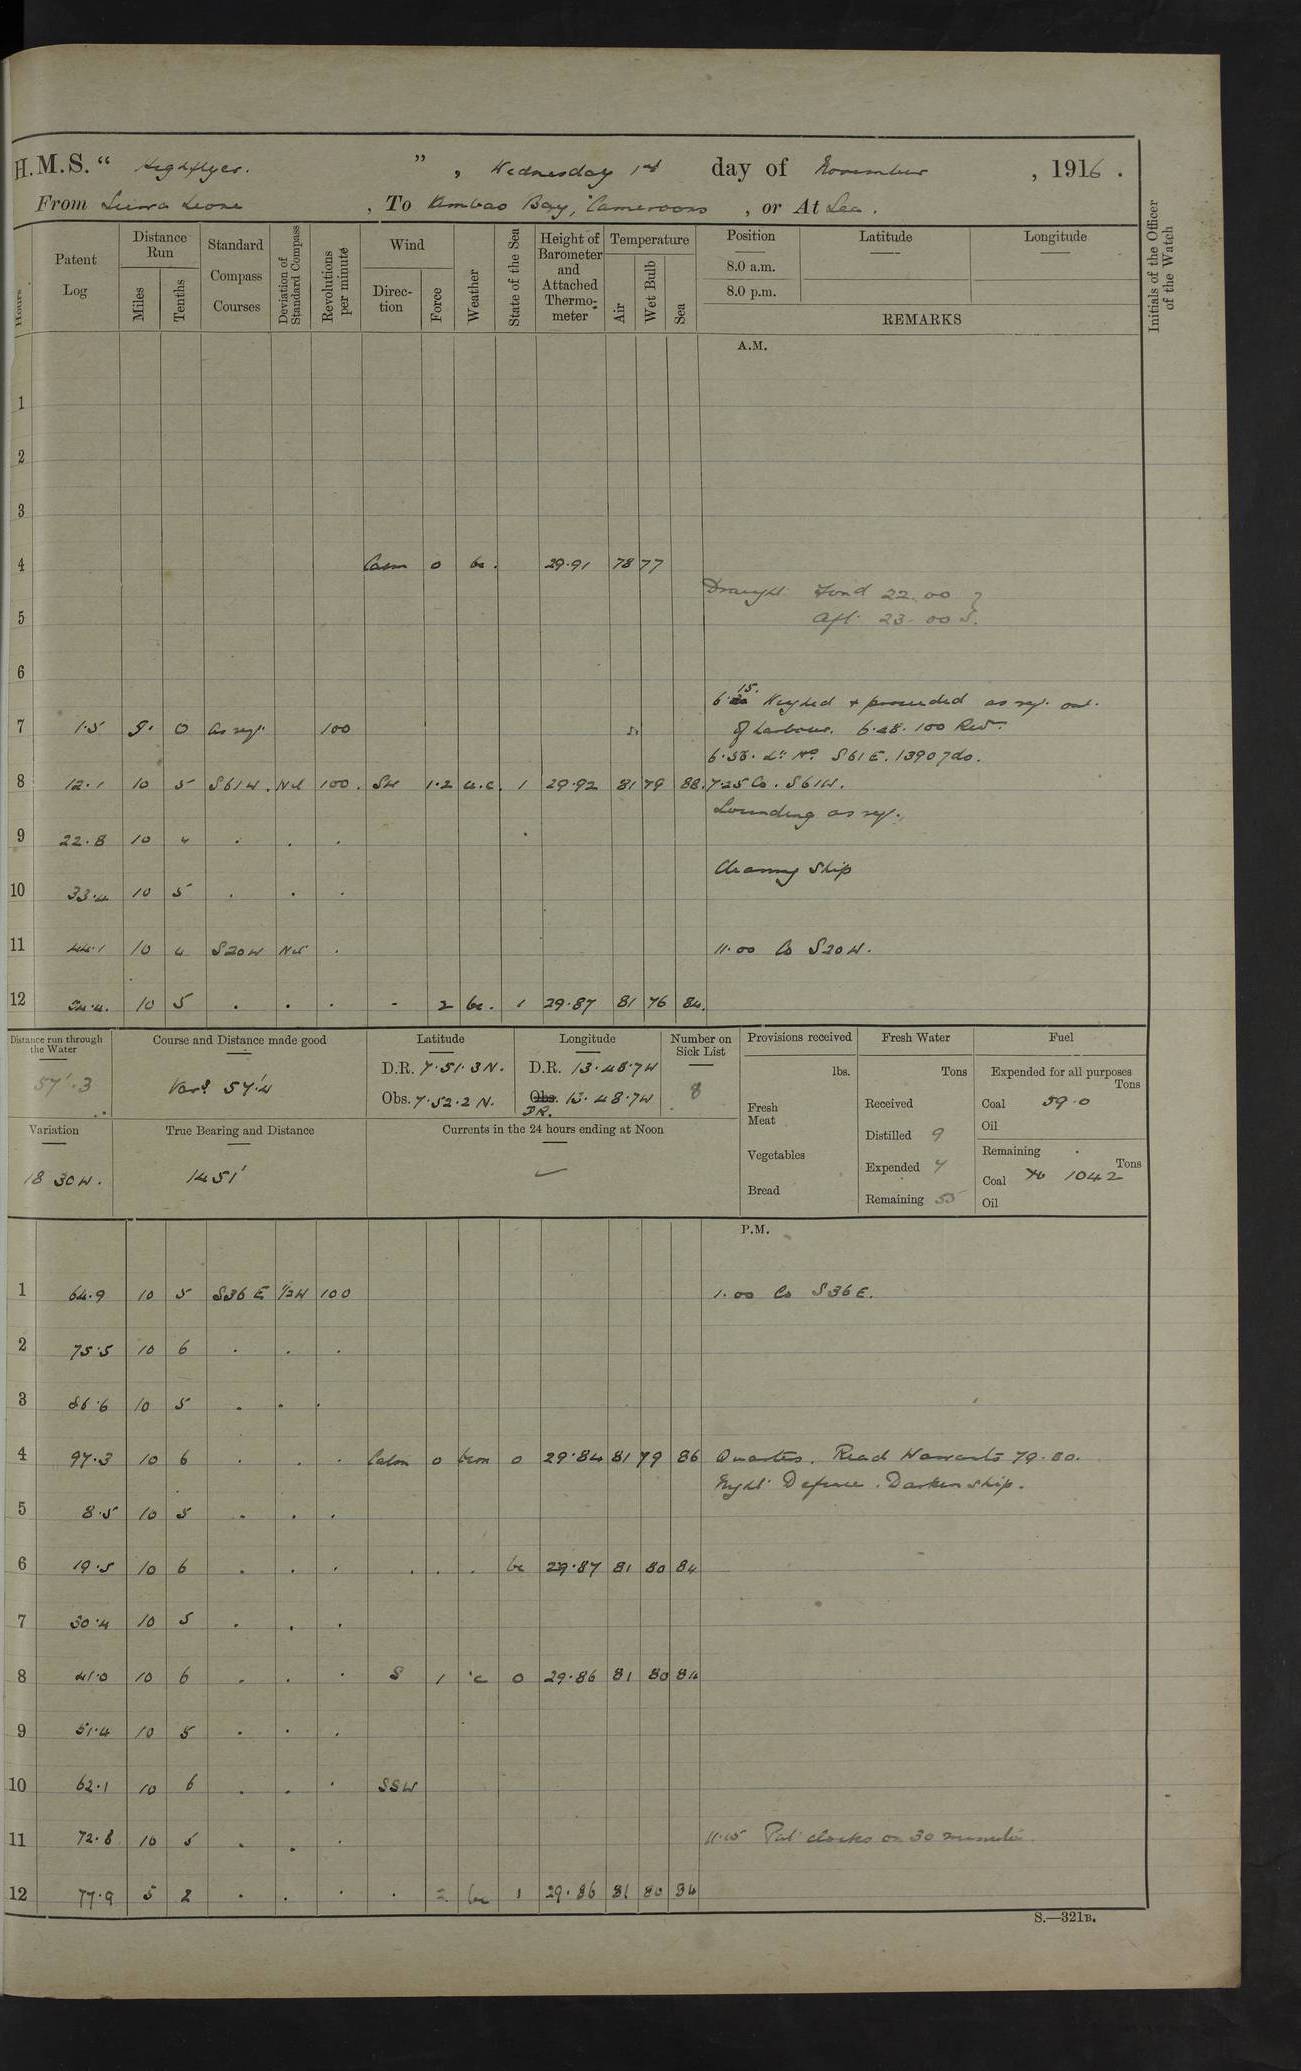 H.M.S. “ Highflyer. ” , Wednesday 1st day of November , 1916 .
From Sierra Leone , To Ambas Bay, Cameroons , or At Sea .
Hours
Patent Log
Distance Run
Miles
Tenths
Standard Compass Courses
Deviation of Standard Compass
Revolutions per minute
Wind
Direction
Force
Weather
State of the Sea
Height of Barometer and Attached Thermometer
Temperature
Air
Wet Bulb
Sea
Position
8.0 a.m.
8.0 p.m.
Latitude
Longitude
REMARKS
Initials of the Officer of the Watch
A.M.
1
2
3
4 Calm 0 bc. 29.91 78 77
Draught Forwd 22.00
5 Aft 23.00
6
6.15. Weighed & proceeded as req. out
7 1.5 0 as req. 100 of harbour. 6.48. 100 Rev.
S61E. 1390 7do.
8 12.1 10 5 S61W. Nil 100. SW 1.2 1 29.92 81 79 88. 7.25 Co. S61W.
Sounding as req.
9 22.8 10 4 . . .
Cleaning Ship
10 33.4 10 5 . . .
11 44.1 10 4 S20W Nil . 11.00 Co S20W.
12 54.4. 10 5 . . . - 2 bc. 1 29.87 81 76 84.
Distance run through the Water
57'.3
Course and Distance made good
Vars 57'.4
Latitude
D.R. 7.51.3N.
Obs. 7.52.2N.
Longitude
D.R. 13.48.7W
Obs. 13.48.7W
D.R.
Number on Sick List
8
Provisions received
lbs.
Fresh Meat
Vegetables
Bread
Fresh Water
Tons
Received
Distilled 9
Expended 7
Remaining 55
Fuel
Expended for all purposes
Tons
Coal 59.0
Oil
Remaining
Tons
Coal 1042
Oil
Variation
18 30W.
True Bearing and Distance
1451'
Currents in the 24 hours ending at Noon
P.M.
1 64.9 10 5 S36E ½W 100 1.00 Co S36E.
2 75.5 10 6 . . .
3 86.6 10 5 . . .
4 97.3 10 6 . . . Calm 0 bcm 0 29.84 81 79 86 Quarters. Read Warrants 79.80.
Night Defence. Darken ship.
5 8.5 10 5 . . .
6 19.5 10 6 . . . . . . bc 29.87 81 80 84
7 30.4 10 5 . . .
8 41.0 10 6 . . . S 1 c 0 29.86 81 80 84
9 51.4 10 5 . . .
10 62.1 10 6 . . . SSW
11 72.8 10 5 . . . 11.15 Put clocks on 30 minutes.
12 77.9 5 2 . . . . 2 bc 1 29.86 81 80 84
S.—321B.